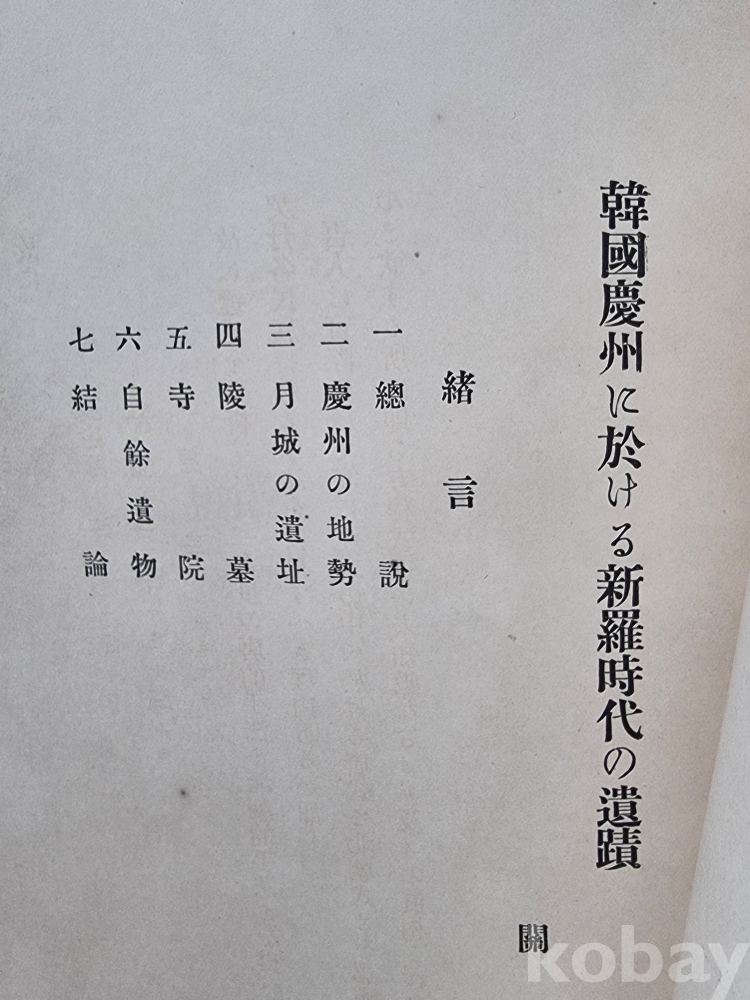 韓國慶州に於ける新羅時代の遺蹟
關
緒言
一總說
二慶州の地勢
三月城の遺址
四陵墓
五寺院
六自餘遺物
七結論
kobay